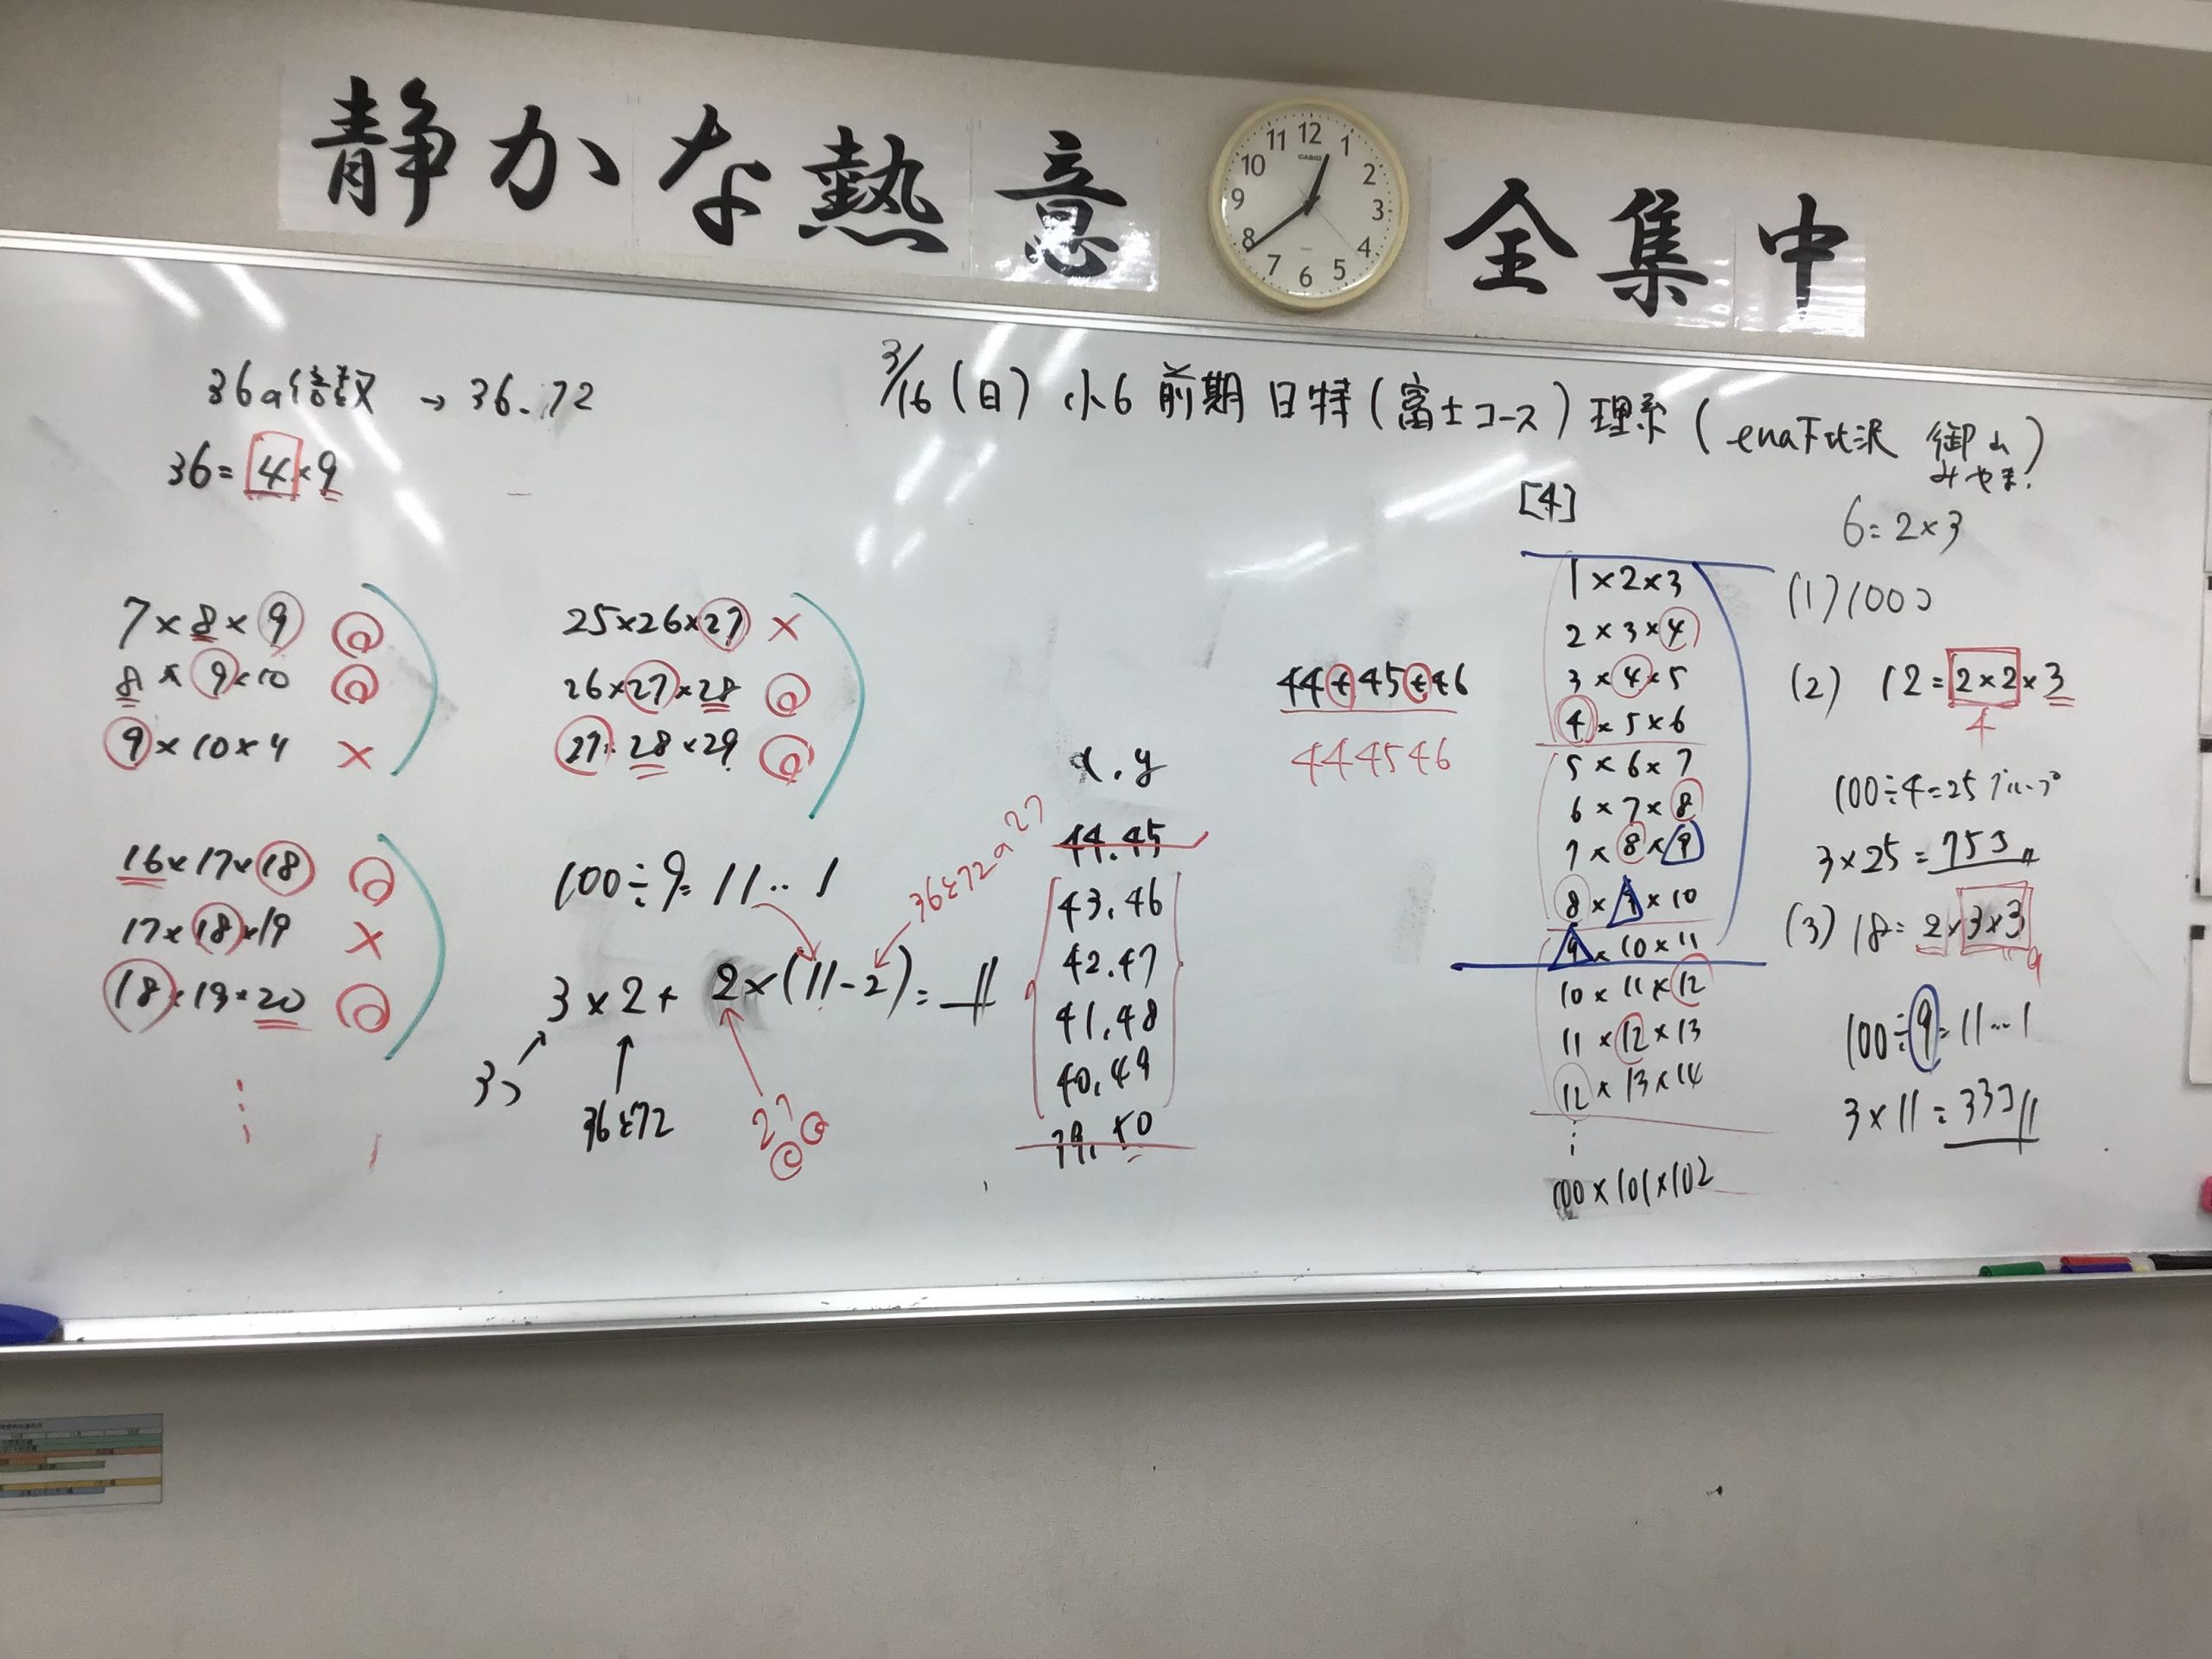 静かな熱意 全集中
12
1
2
3
4
5
6
7
8
9
10
11
CASIO
3/16(日) 小6 前期 日特(富士コース) 理系(ena下北沢 御山)
みやま.
36の倍数 → 36.72
36=4×9
7×8×9 ◎
8×9×10 ◎
9×10×4 ×
16×17×18 ◎
17×18×19 ×
18×19×20 ◎
⋮
25×26×27 ×
26×27×28 ◎
27×28×29 ◎
100÷9=11…1
36と72の2つ
3×2+2×(11-2)=
3つ
36と72
2つ
x.y
44.45
43.46
42.47
41.48
40.49
39.50
44+45+46
444546
[4]
1×2×3
2×3×4
3×4×5
4×5×6
5×6×7
6×7×8
7×8×9
8×9×10
9×10×11
10×11×12
11×12×13
12×13×14
⋮
100×101×102
6=2×3
(1)100コ
(2) 12=2×2×3
4
100÷4=25グループ
3×25=75コ
(3) 18=2×3×3
9
100÷9=11…1
3×11=33コ